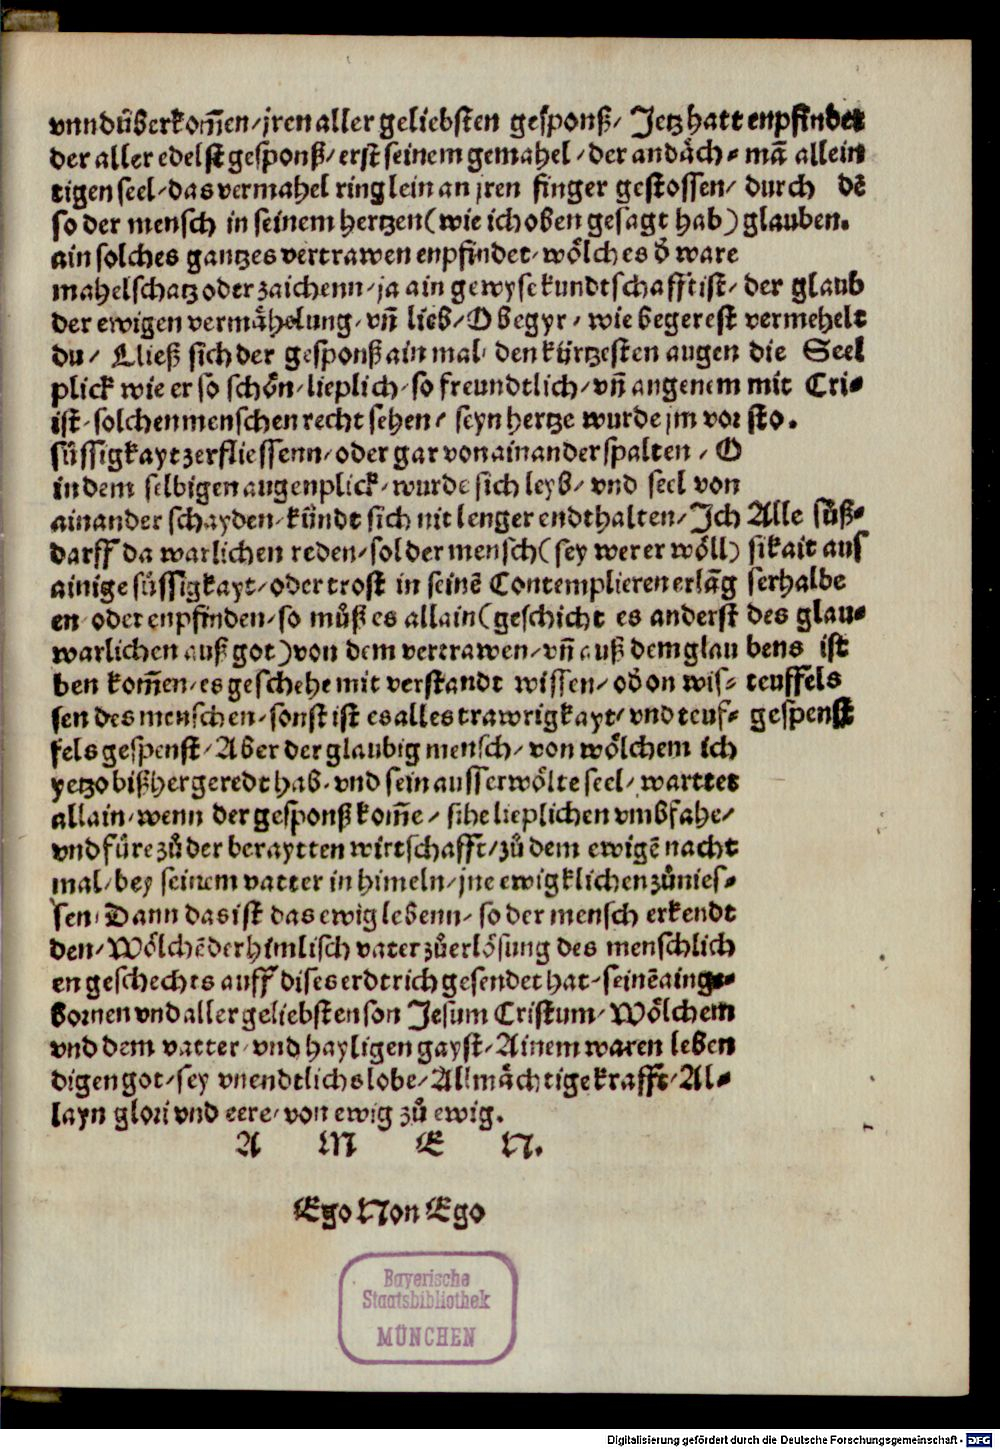 vnnd überkom̄en/ jren aller geliebsten gesponß/ Jetz hatt
der aller edelst gesponß/ erst seinem gemahel/ der andäch=
tigen seel/ das vermahel ringlein an jren finger gestossen/
so der mensch in seinem hertzen (wie ich oben gesagt hab)
ain solches gantzes vertrawen enpfindet/ wölches ð ware
mahelschatz oder zaichenn/ ja ain gewyse kundtschafft ist/
der ewigen vermähelung/ vn̄ lieb/ O begyr/ wie begerest
du/ Lließ sich der gesponß ain mal/ den kürtzesten augen
plick wie er so schön/ lieplich/ so freundtlich/ vn̄ angenem
ist/ solchen menschen recht sehen/ seyn hertze wurde jm vor
süssigkayt zerfliessenn/ oder gar von ainander spalten/ O
in dem selbigen augenplick/ wurde sich leyb/ vnd seel von
ainander schayden/ kündt sich nit lenger endthalten/ Jch
darff da warlichen reden/ sol der mensch (sey wer er wöll)
ainige süssigkayt/ oder trost in seinē Contemplieren erlāg
en oder enpfinden/ so můß es allain (geschicht es anderst
warlichen auß got) von dem vertrawen/ vn̄ auß dem glau
ben kom̄en/ es geschehe mit verstandt wissen/ oð on wis=
sen des menschen/ sonst ist es alles trawrigkayt/ vnd teuf=
fels gespenst/ Aber der glaubig mensch/ von wölchem ich
yetzo bißher geredt hab/ vnd sein ausserwölte seel/ warttet
allain/ wenn der gesponß kom̄e/ sihe lieplichen vmbfahe/
vnd füre zů der beraytten wirtschafft/ zů dem ewigē nacht
mal/ bey seinem vatter in himeln/ jne ewigklichen zůnies=
sen/ Dann das ist das ewig lebenn/ so der mensch erkendt
den/ Wölchē der himlisch vater zů erlösung des menschlich
en geschechts auff dises erdtrich gesendet hat/ seinē ainge=
bornen vnd aller geliebsten son Jesum Cristum/ Wölchem
vnd dem vatter/ vnd hayligen gayst/ Ainem waren leben
digen got/ sey vnendtlichs lobe/ Allmächtige krafft/ Al=
layn glori vnd eere/ von ewig zů ewig.
A M E N.
Ego Non Ego
enpfindet
mā allein
durch dē
glauben.
der glaub
vermehelt
die Seel
mit Cri=
sto.
Alle süß=
sikait aus
serhalbe
des glau=
bens ist
teuffels
gespenst
Bayerische
Staatsbibliothek
MÜNCHEN
Digitalisierung gefördert durch die Deutsche Forschungsgemeinschaft - DFG